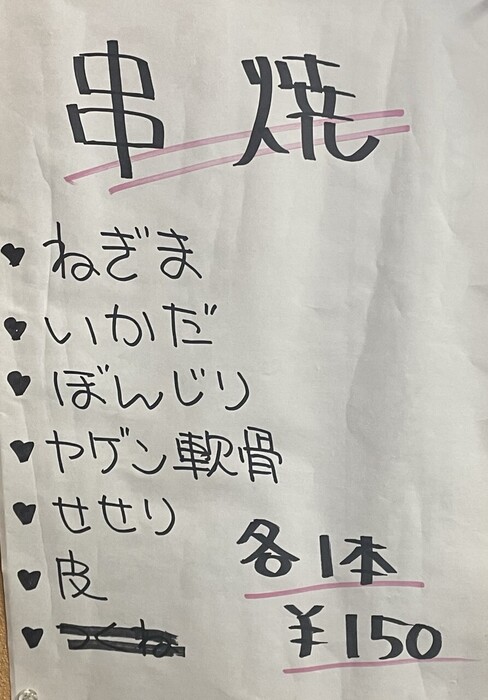 串焼
ねぎま
いかだ
ぼんじり
ヤゲン軟骨
せせり
皮
つくね
各1本
¥150